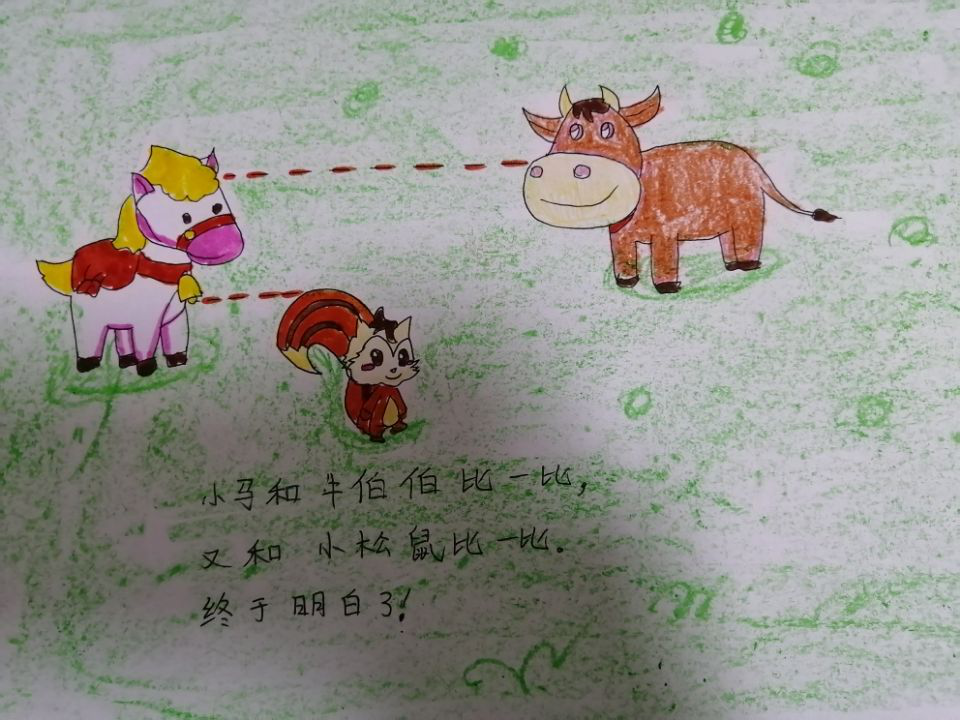 小马和牛伯伯比一比，
又和小松鼠比一比.
终于明白了!